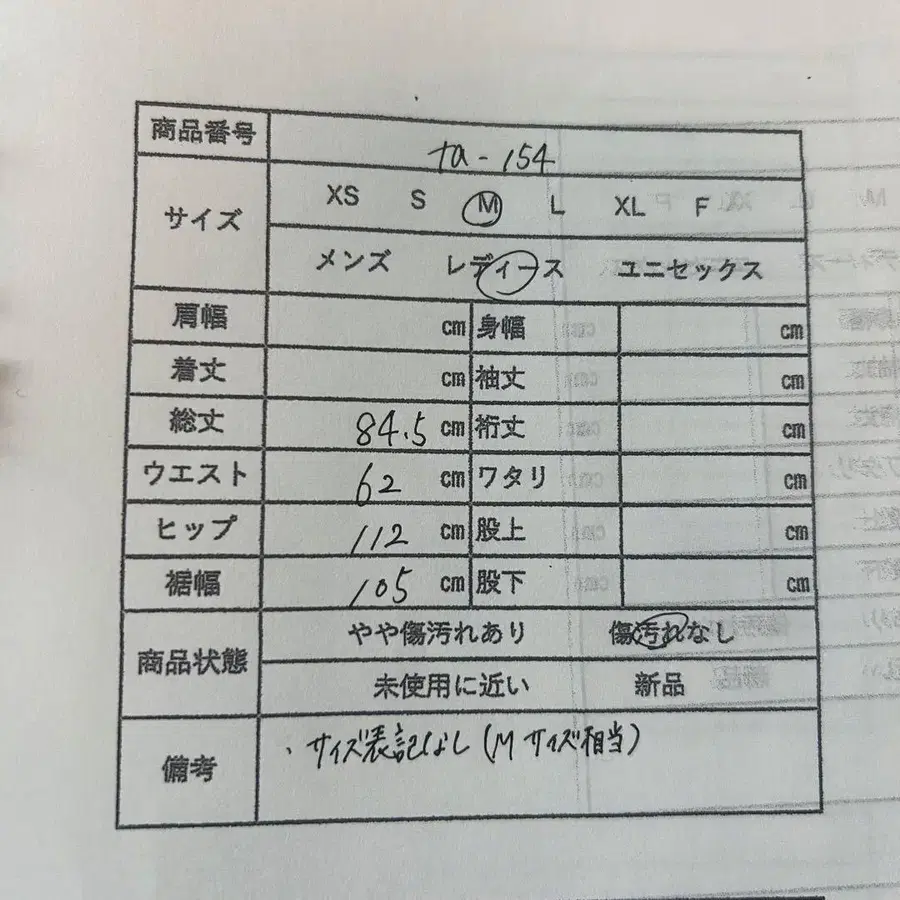 商品番号 ta-154
サイズ XS S M L XL F
メンズ レディース ユニセックス
肩幅 cm 身幅 cm
着丈 cm 袖丈 cm
総丈 84.5 cm 裄丈 cm
ウエスト 62 cm ワタリ cm
ヒップ 112 cm 股上 cm
裾幅 105 cm 股下 cm
商品状態 やや傷汚れあり 傷汚れなし
未使用に近い 新品
備考 ・サイズ表記なし(Mサイズ相当)